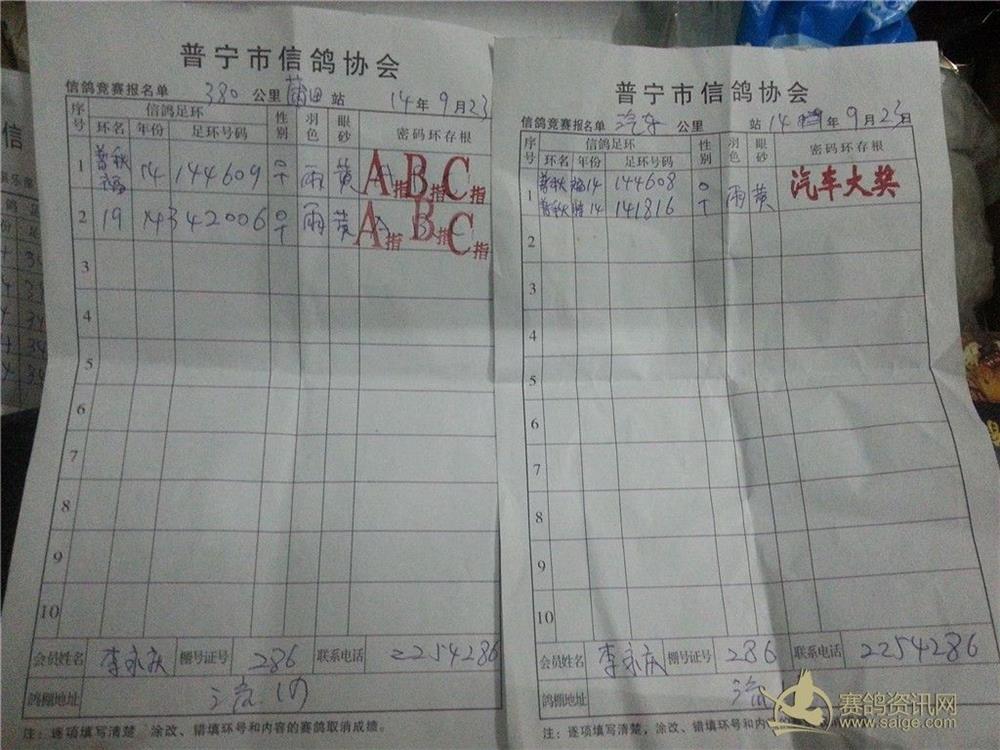 普宁市信鸽协会
信鸽竞赛报名单 380 公里 莆田 站 14年 9月23
序号 信鸽足环 性别 羽色 眼砂 密码环存根
环名 年份 足环号码
1 普秋 14 144609 ♀ 雨 黄 A指B指C指
2 19 14 342006 ♀ 雨 黄 A指B指C指
3
4
5
6
7
8
9
10
会员姓名 李永庆 棚号证号 286 联系电话 2254286
鸽棚地址
注：逐项填写清楚，涂改、错填环号和内容的赛鸽取消成绩。
普宁市信鸽协会
信鸽竞赛报名单 汽车 公里 站 14 年 9月23日
序号 信鸽足环 性别 羽色 眼砂 密码环存根
环名 年份 足环号码
1 普秋 14 144608 ♀ 雨 黄 汽车大奖
普秋 14 141816
2
3
4
5
6
7
8
9
10
会员姓名 李永庆 棚号证号 286 联系电话 2254286
鸽棚地址
注：逐项填写清楚，涂改、错填环号和内
赛鸽资讯网
www.saige.com